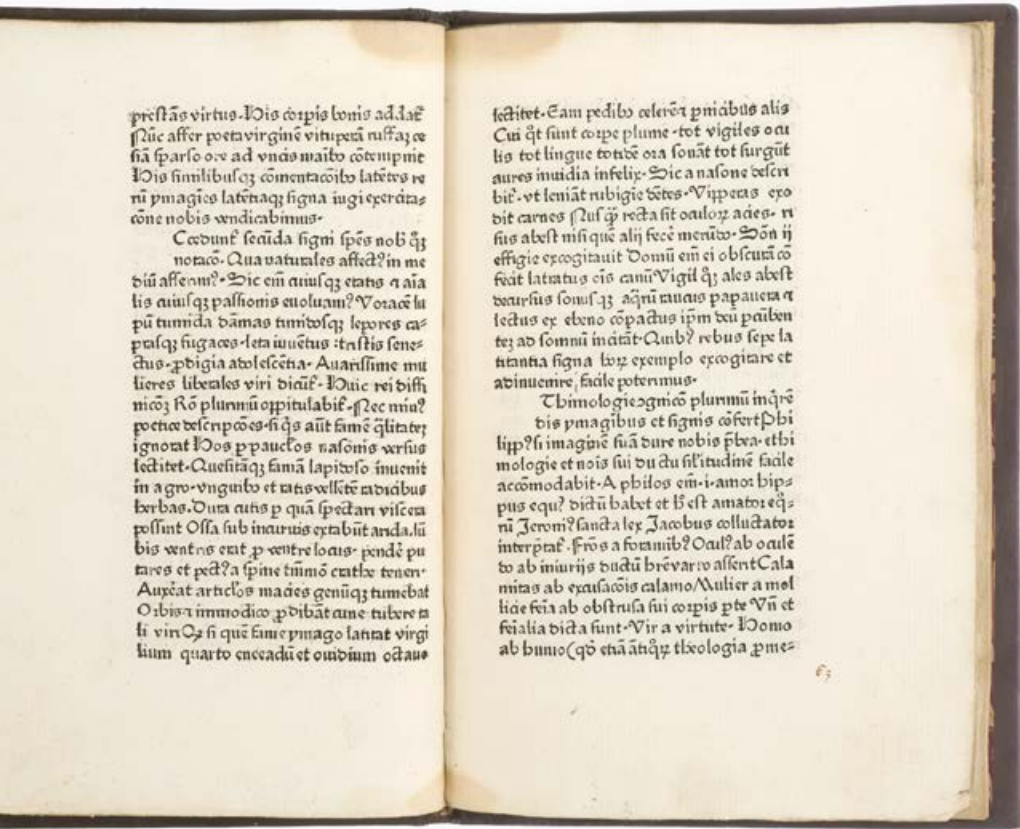 prestās virtus. His corpis bonis addat᷑
Nūc affer poeta virginē vituperā ruffaꝫ ce
siā sparso ore ad vncis maibꝰ cōtempnit
His similibusqꝫ cōmentacōibꝰ latētes re
rū ymagīes latētiaqꝫ signa iugi exercita⸗
cōne nobis vendicabimus.
Ccedunt᷑ secūda signi spēs nob̄ qꝫ
notacō. Qua naturales affectꝰ in me
diū afferimꝰ. Sic em̄ cuiusqꝫ etatis ⁊ aīa
lis cuiusqꝫ passionis euoluam? Voracē lu
pū tumida dāmas timidosqꝫ lepores ca⸗
prasqꝫ fugaces. leta iuuētus : tristis sene⸗
ctus. ꝓdigia adolescētia. Auarissime mu
lieres liberales viri dicūt᷑. Huic rei diffi
nicōꝫ Rō plurimū oppitulabit᷑. Nec minꝰ
poetice descripcōes. si q̄s aūt famē q̄litateꝫ
ignorat Hos ꝑ pauclos nasonis versus
lectitet. Quesitāqꝫ famā lapidoso inuenit
in agro. vnguibꝰ et raris vellētē radicibus
herbas. Dura cutis ꝑ quā spectari viscera
possint Ossa sub incuruis extabūt arida. lū
bis ventris erat ꝓ ventre locus. pendē pu
tares et pectꝰ a spine tm̄mō crathe teneri.
Auxēat articl̄os macies genūqꝫ tumebat
Orbis ⁊ immodico ꝓdibāt cune tubere ta
li viri Qꝫ si que fame ymago latitat virgi
lium quarto eneadū et ouidium octauo
lectitet. Eam pedibꝰ celerē ⁊ ꝑnicibus alis
Cui q̄t sunt corpe plume. tot vigiles ocu
lis tot lingue totidē ora sonāt tot surgūt
aures inuidia infelix. Sic a nasone descri
bit᷑. vt leniāt rubigīe dētes. Vipperas exo
dit carnes Nusq̄ recta sit oculoꝝ acies. ri
sus abest nisi quē alij fecē merūdo. Sōn ij
effigie excogitauit Domū em̄ ei obscurā cō
fecit latratus eīs canū Vigil qꝫ ales abest
decursus sonusqꝫ aq̄rū raucus papauera ⁊
lectus ex ebeno cōpactus ip̄m deū ꝑcūben
teꝫ ad somnū incitāt. Quibꝰ rebus sepe la
titantia signa hoꝝ exemplo excogitare et
adinuenire, facile poterimus.
Thimologie ꝯgnicō plurimū inq̄rē
dis ymagibus et signis cōfert Phi
lippꝰ si imaginē suā dure nobis p̄bea. ethi
mologie et nois sui ductu sil̄itudinē facile
accōmodabit. A philos em̄ .i. amor hip⸗
pus equꝰ dictū habet et h̄ est amator eq̄⸗
rū Jeronīꝰ sancta lex Jacobus colluctator
interp̄tat᷑. Frōs a foramībꝰ Oculꝰ ab oculē
do ab iniurijs ductū bre varro asserit Cala
mitas ab excusacōis calamo Mulier a mol
licie feīa ab obstrusa sui corpis ꝑte Vn̄ et
feīalia dicta sunt. Vir a virtute. Homo
ab humo (qd̄ etiā ātiqꝝ theologia ꝓme⸗
63